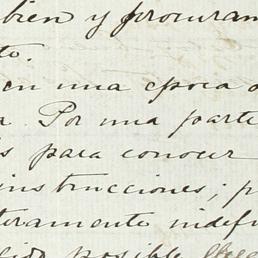 bien y procuran
to.
en una epoca
a. Por una parte
s para conocer
instrucciones; p
teramente indef
posible